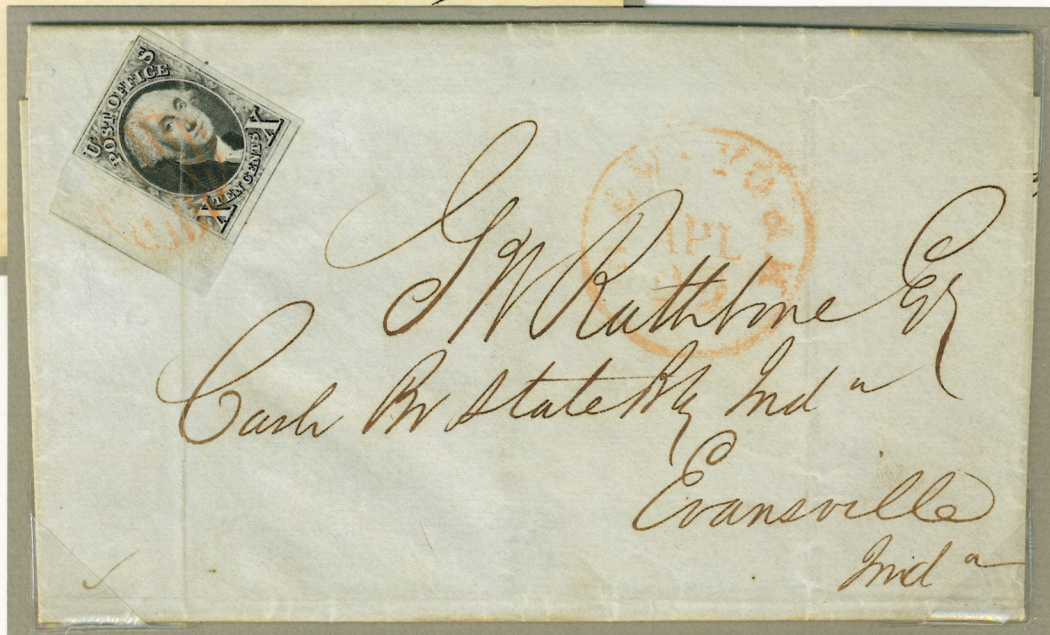 U S
POST OFFICE
X TEN CENTS X
NEW YORK
APL
G W Rathbone Esq
Cash Br State Bk Ind a
Evansville
Ind a